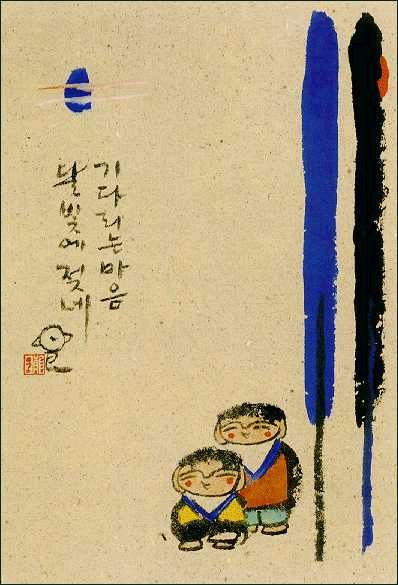 기다리는 마음
달빛에 젖네